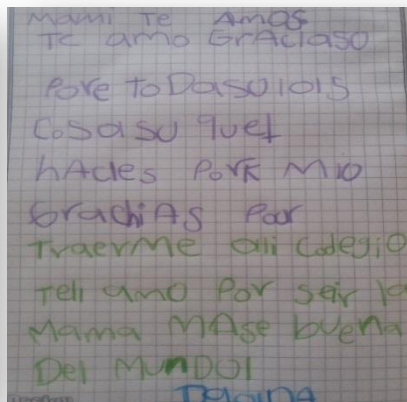 Mami Te AmOS
Te amo GrAciaso
Pore toDasuiois
Cosasu quet
hAdes Pork Mio
GrachiAs Poor
TraerMe alli Codegio
Teli amo Por seir la
Mama MAse buena
Del MUnDOl